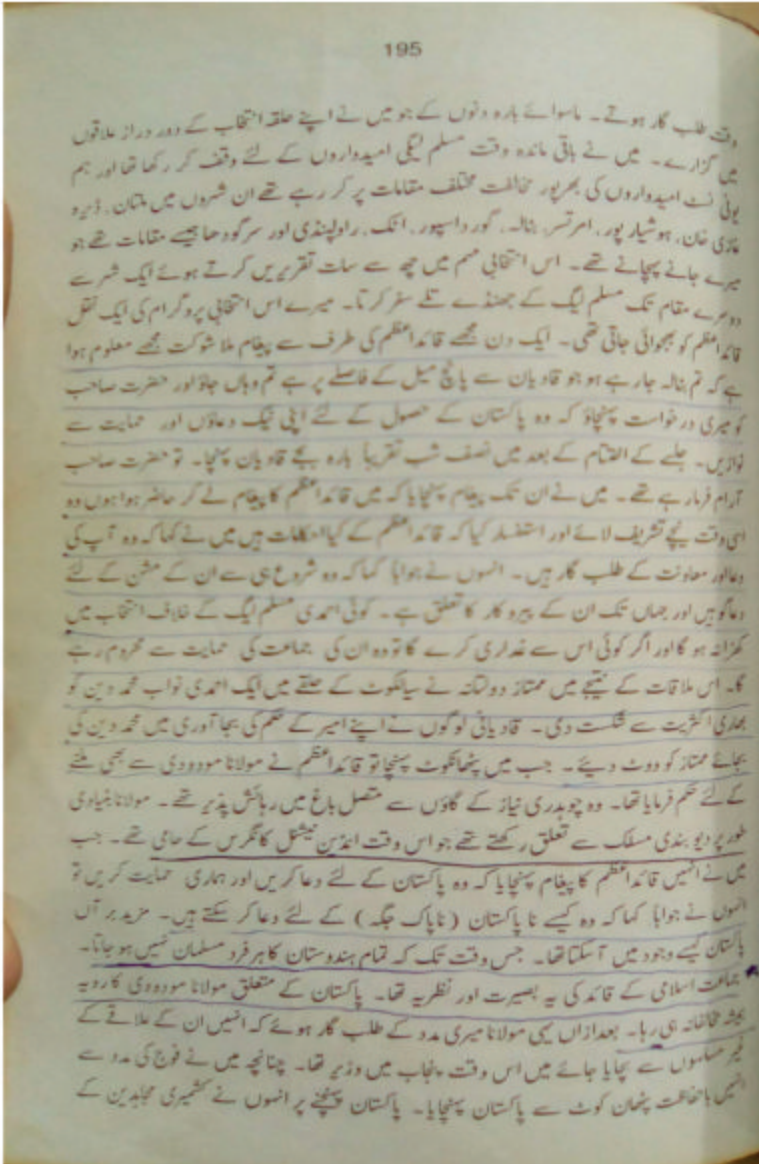 195
وقت طلب گار ہوتے۔ ماسوائے بارہ دنوں کے جو میں نے اپنے حلقہ انتخاب کے دور دراز علاقوں
میں گزارے۔ میں نے باقی ماندہ وقت مسلم لیگی امیدواروں کے لئے وقف کر رکھا تھا اور ہم
یونی نسٹ امیدواروں کی بھرپور مخالفت مختلف مقامات پر کر رہے تھے ان شہروں میں ملتان، ڈیرہ
غازی خان، ہوشیار پور، امرتسر، بٹالہ، گورداسپور، اٹک، راولپنڈی اور سرگودھا جیسے مقامات تھے جو
میرے جانے پہچانے تھے۔ اس انتخابی مہم میں چھ سے سات تقریریں کرتے ہوئے ایک شہر سے
دوسرے مقام تک مسلم لیگ کے جھنڈے تلے سفر کرتا۔ میرے اس انتخابی پروگرام کی ایک نقل
قائداعظم کو بھجوائی جاتی تھی۔ ایک دن مجھے قائداعظم کی طرف سے پیغام ملا شوکت مجھے معلوم ہوا
ہے کہ تم بٹالہ جا رہے ہو جو قادیان سے پانچ میل کے فاصلے پر ہے تم وہاں جاؤ اور حضرت صاحب
کو میری درخواست پہنچاؤ کہ وہ پاکستان کے حصول کے لئے اپنی نیک دعاؤں اور حمایت سے
نوازیں۔ جلسے کے اختتام کے بعد میں نصف شب تقریباً بارہ بجے قادیان پہنچا۔ تو حضرت صاحب
آرام فرما رہے تھے۔ میں نے ان تک پیغام پہنچایا کہ میں قائداعظم کا پیغام لے کر حاضر ہوا ہوں وہ
اسی وقت نیچے تشریف لائے اور استفسار کیا کہ قائداعظم کے کیا احکامات ہیں میں نے کہا کہ وہ آپ کی
دعا اور معاونت کے طلب گار ہیں۔ انہوں نے جواباً کہا کہ وہ شروع ہی سے ان کے مشن کے لئے
دعاگو ہیں اور جہاں تک ان کے پیروکار کا تعلق ہے۔ کوئی احمدی مسلم لیگ کے خلاف انتخاب میں
کھڑا نہ ہو گا اور اگر کوئی اس سے غداری کرے گا تو وہ ان کی جماعت کی حمایت سے محروم رہے
گا۔ اس ملاقات کے نتیجے میں ممتاز دولتانہ نے سیالکوٹ کے حلقے میں ایک احمدی نواب محمد دین کو
بھاری اکثریت سے شکست دی۔ قادیانی لوگوں نے اپنے امیر کے حکم کی بجا آوری میں محمد دین کی
بجائے ممتاز کو ووٹ دیئے۔ جب میں پٹھانکوٹ پہنچا تو قائداعظم نے مولانا مودودی سے بھی ملنے
کے لئے حکم فرمایا تھا۔ وہ چوہدری نیاز کے گاؤں سے متصل باغ میں رہائش پذیر تھے۔ مولانا بنیادی
طور پر دیوبندی مسلک سے تعلق رکھتے تھے جو اس وقت انڈین نیشنل کانگرس کے حامی تھے۔ جب
میں نے انہیں قائداعظم کا پیغام پہنچایا کہ وہ پاکستان کے لئے دعا کریں اور ہماری حمایت کریں تو
انہوں نے جواباً کہا کہ وہ کیسے نا پاکستان (ناپاک جگہ) کے لئے دعا کر سکتے ہیں۔ مزید بر آں
پاکستان کیسے وجود میں آ سکتا تھا۔ جس وقت تک کہ تمام ہندوستان کا ہر فرد مسلمان نہیں ہو جاتا۔
جماعت اسلامی کے قائد کی یہ بصیرت اور نظریہ تھا۔ پاکستان کے متعلق مولانا مودودی کا رویہ
ہمیشہ مخالفانہ ہی رہا۔ بعدازاں یہی مولانا میری مدد کے طلب گار ہوئے کہ انہیں ان کے علاقے کے
غیر مسلموں سے بچایا جائے میں اس وقت پنجاب میں وزیر تھا۔ چنانچہ میں نے فوج کی مدد سے
انہیں باحفاظت پٹھان کوٹ سے پاکستان پہنچایا۔ پاکستان پہنچنے پر انہوں نے کشمیری مجاہدین کے